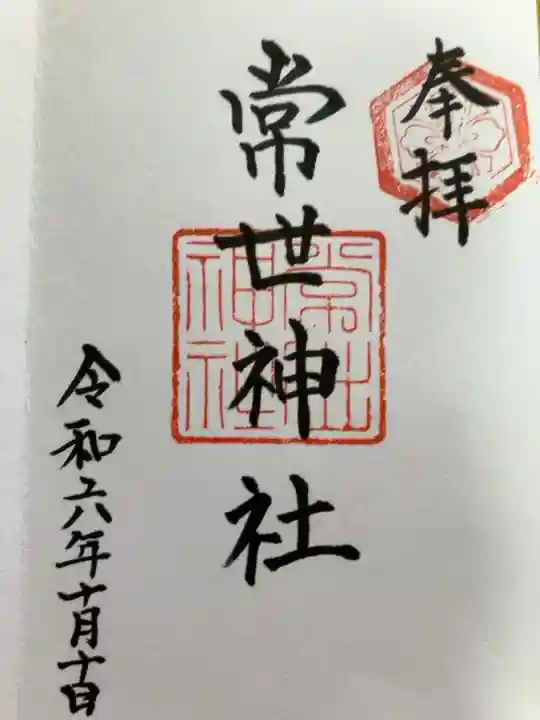 奉拝
常世神社
常世
神社
令和六年十月十日